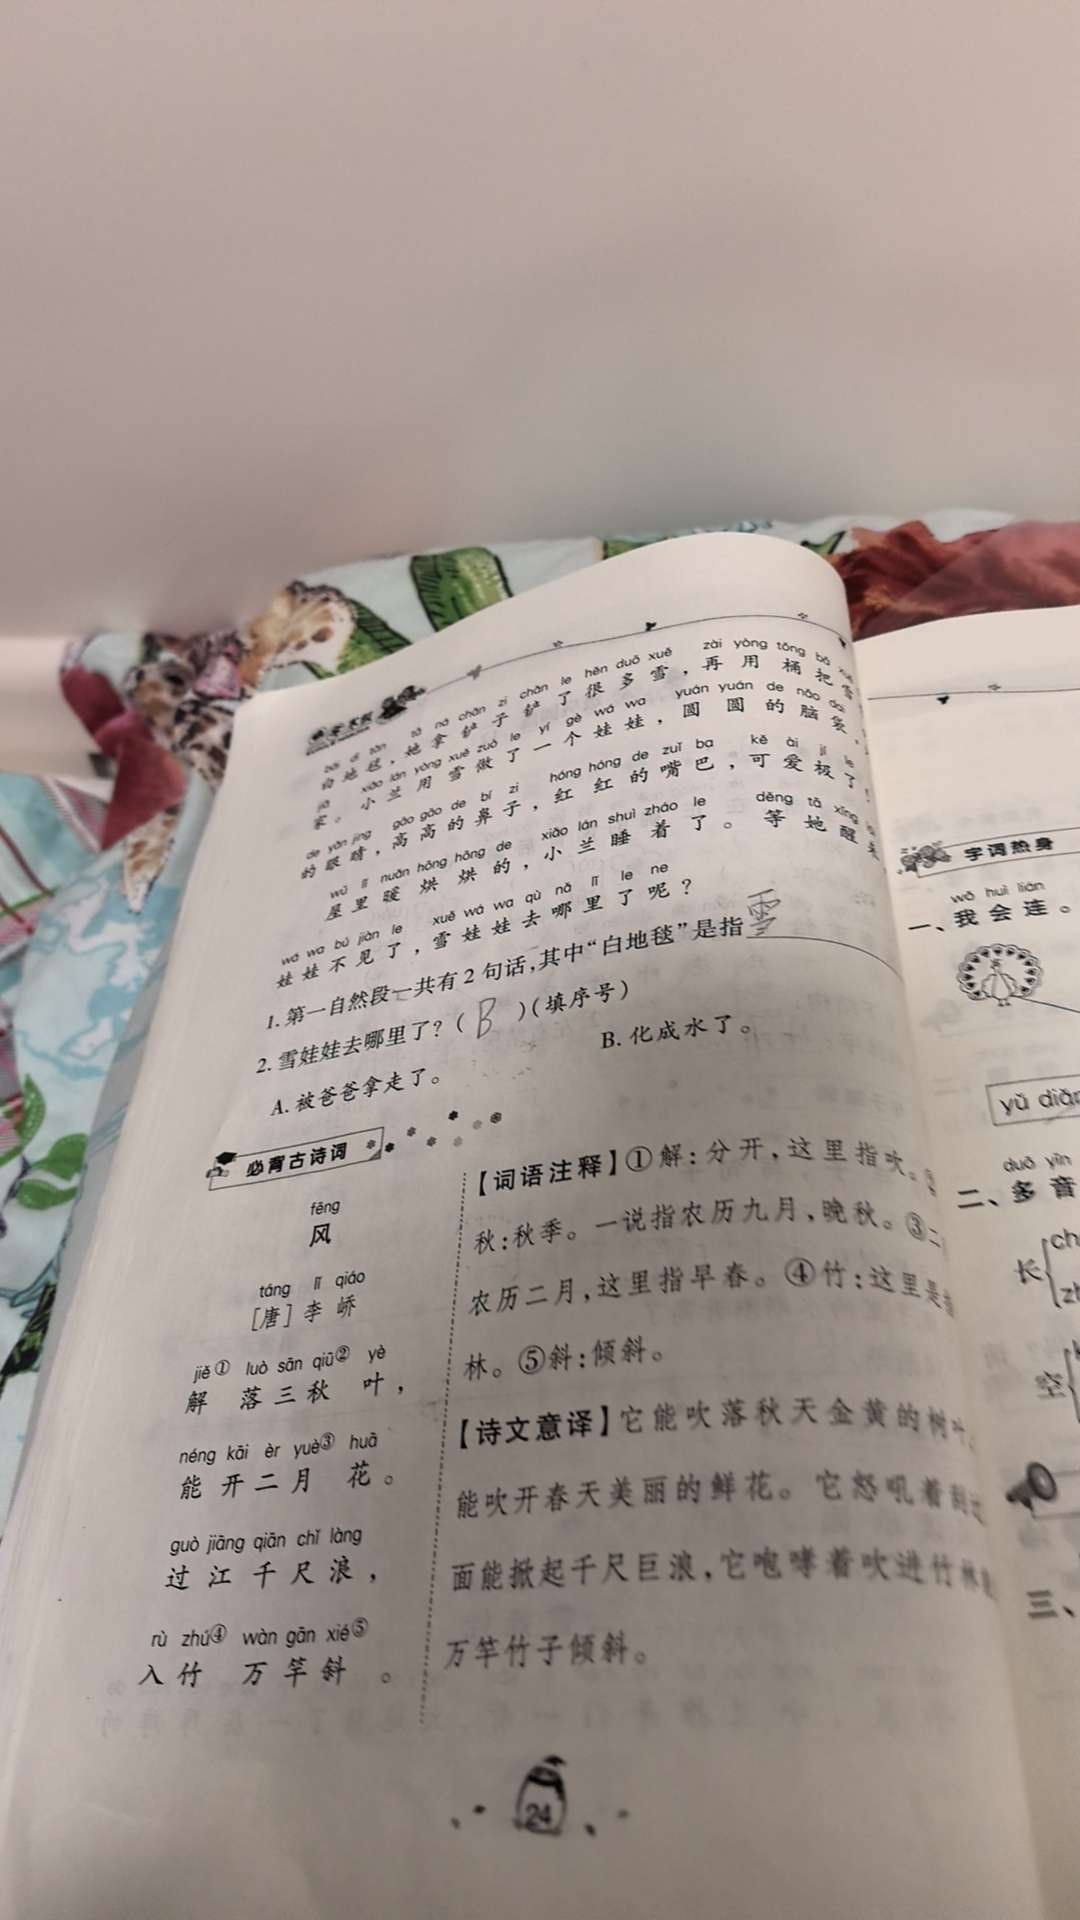 bái dì tǎn tā ná chǎn zi chǎn le hěn duō xuě zài yòng tǒng bǎ xuě
白地毯，她拿铲子铲了很多雪，再用桶把雪
jiā xiǎo lán yòng xuě zuò le yí gè wá wa yuán yuán de nǎo dai
家。小兰用雪做了一个娃娃，圆圆的脑袋，
de yǎn jing gāo gāo de bí zi hóng hóng de zuǐ ba kě ài jí le
的眼睛，高高的鼻子，红红的嘴巴，可爱极了！
wū lǐ nuǎn hōng hōng de xiǎo lán shuì zháo le děng tā xǐng
屋里暖烘烘的，小兰睡着了。等她醒来
wá wa bú jiàn le xuě wá wa qù nǎ lǐ le ne
娃娃不见了，雪娃娃去哪里了呢？
1. 第一自然段一共有2句话，其中“白地毯”是指雪
2. 雪娃娃去哪里了？（B）（填序号）
A. 被爸爸拿走了。 B. 化成水了。
必背古诗词
fēng
风
táng lǐ qiáo
［唐］李峤
jiě① luò sān qiū② yè
解落三秋叶，
néng kāi èr yuè③ huā
能开二月花。
guò jiāng qiān chǐ làng
过江千尺浪，
rù zhú④ wàn gān xié⑤
入竹万竿斜。
【词语注释】①解：分开，这里指吹。
秋：秋季。一说指农历九月，晚秋。③二
农历二月，这里指早春。④竹：这里是
林。⑤斜：倾斜。
【诗文意译】它能吹落秋天金黄的树叶，
能吹开春天美丽的鲜花。它怒吼着刮
面能掀起千尺巨浪，它咆哮着吹进竹林
万竿竹子倾斜。
24
字词热身
wǒ huì lián
一、我会连。
yǔ diǎn
duō yīn
二、多音
长
空
三、